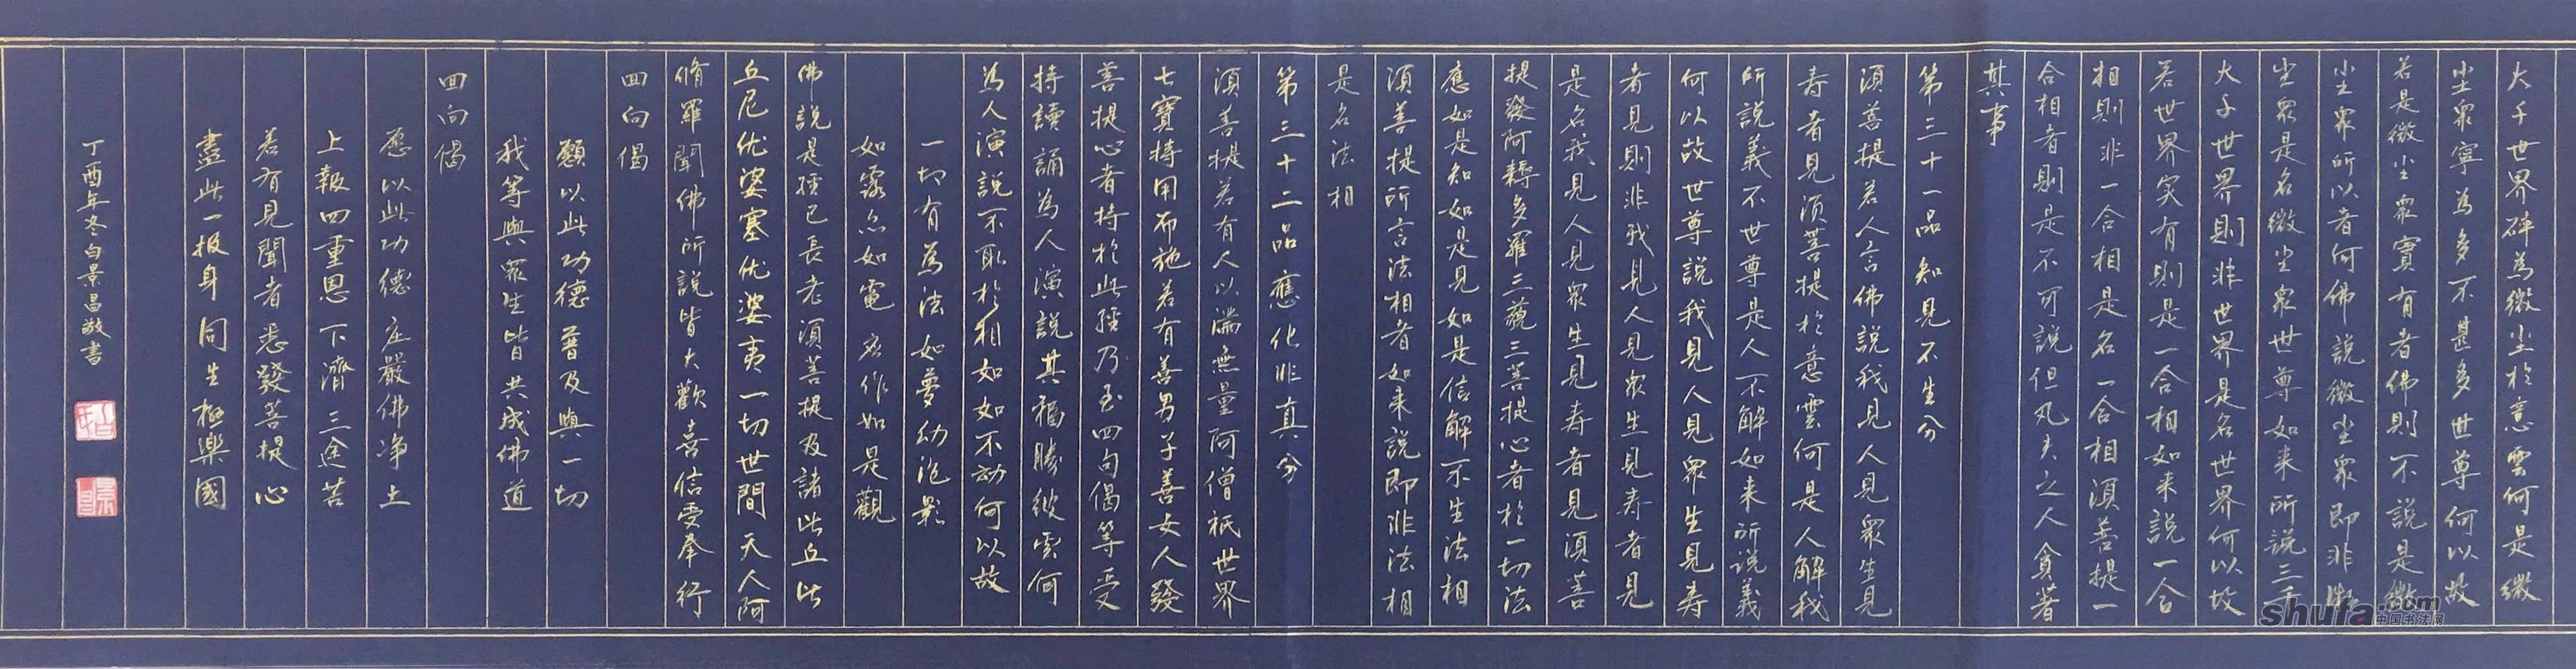 大千世界碎為微尘於意雲何是微
尘衆寧為多不甚多世尊何以故
若是微尘衆實有者佛則不說是微
尘衆所以者何佛說微尘衆即非微
尘衆是名微尘衆世尊如来所說三千
大千世界則非世界是名世界何以故
若世界实有則是一合相如来説一合
相則非一合相是名一合相須菩提一
合相者則是不可説但凡夫之人貪著
其事
第三十一品知見不生分
須菩提若人言佛説我見人見衆生見
寿者見須菩提於意雲何是人解我
所說義不世尊是人不解如来所说義
何以故世尊說我見人見衆生見寿
者見則非我見人見衆生見寿者見
是名我見人見衆生見寿者見須菩
提發阿耨多羅三藐三菩提心者於一切法
應如是知如是見如是信解不生法相
須菩提所言法相者如来説即非法相
是名法相
第三十二品應化非真分
須菩提若有人以滿無量阿僧祇世界
七寶持用布施若有善男子善女人發
菩提心者持於此經乃至四句偈等受
持讀誦為人演説其福勝彼雲何
為人演說不取於相如如不动何以故
一切有為法如夢幼泡影
如露亦如電應作如是觀
佛說是經已長老須菩提及諸比丘比
丘尼优婆塞优婆夷一切世間天人阿
脩羅聞佛所說皆大歡喜信受奉行
回向偈
願以此功德普及與一切
我等與衆生皆共成佛道
回向偈
愿以此功德庄嚴佛净土
上報四重恩下濟三途苦
若有見聞者悉發菩提心
盡此一报身同生極樂國
丁酉年冬白景昌敬書
shufa.com
中国书法网